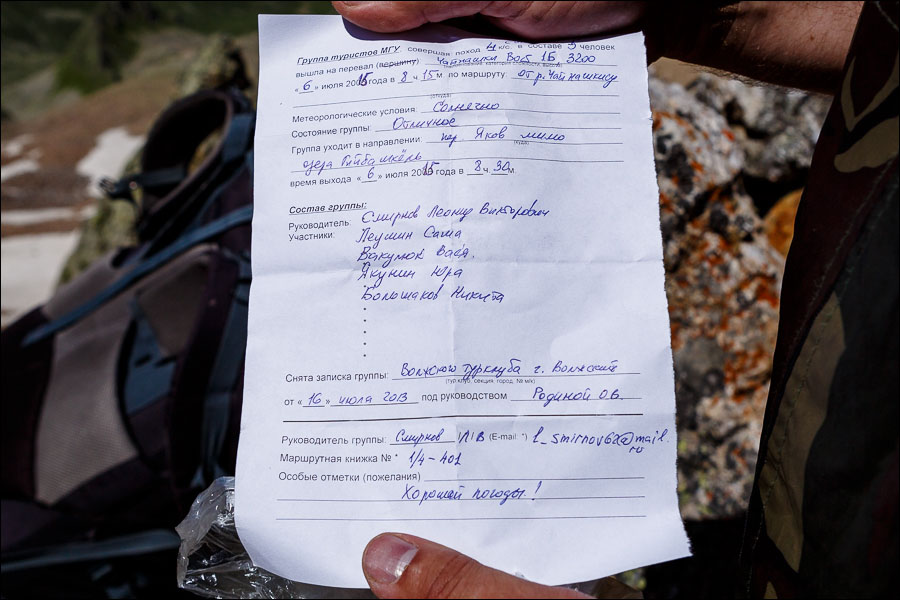 Группа туристов МГУ, совершая поход 4 к/с. в составе 5 человек
вышла на перевал (вершину) Чатпашки Вост 1Б 3200
« 6 » июля 2015 года в 8 ч 15 м по маршруту: от р. Чатпашкису
(откуда)
Метеорологические условия: Солнечно
Состояние группы: Отличное
Группа уходит в направлении пер Яков мимо
(куда)
озера Гыйбашкёль
время выхода « 6 » июля 2015 года в 8 ч. 30 м.
Состав группы:
Руководитель: Смирнов Леонид Викторович
Участники: Леумин Саша
Вакулюк Вася.
Якунин Юра
Большаков Никита
Снята записка группы: Волжского турклуба г. Волжский
(тур.клуб, секция, город, № м/к)
от « 16 » июля 2013 под руководством Родиной О.В.
Руководитель группы: Смирнов /Л/В (E-mail: *) l_smirnov62@mail.
ru
Маршрутная книжка № * 1/4-401
Особые отметки (пожелания)
Хорошей погоды!